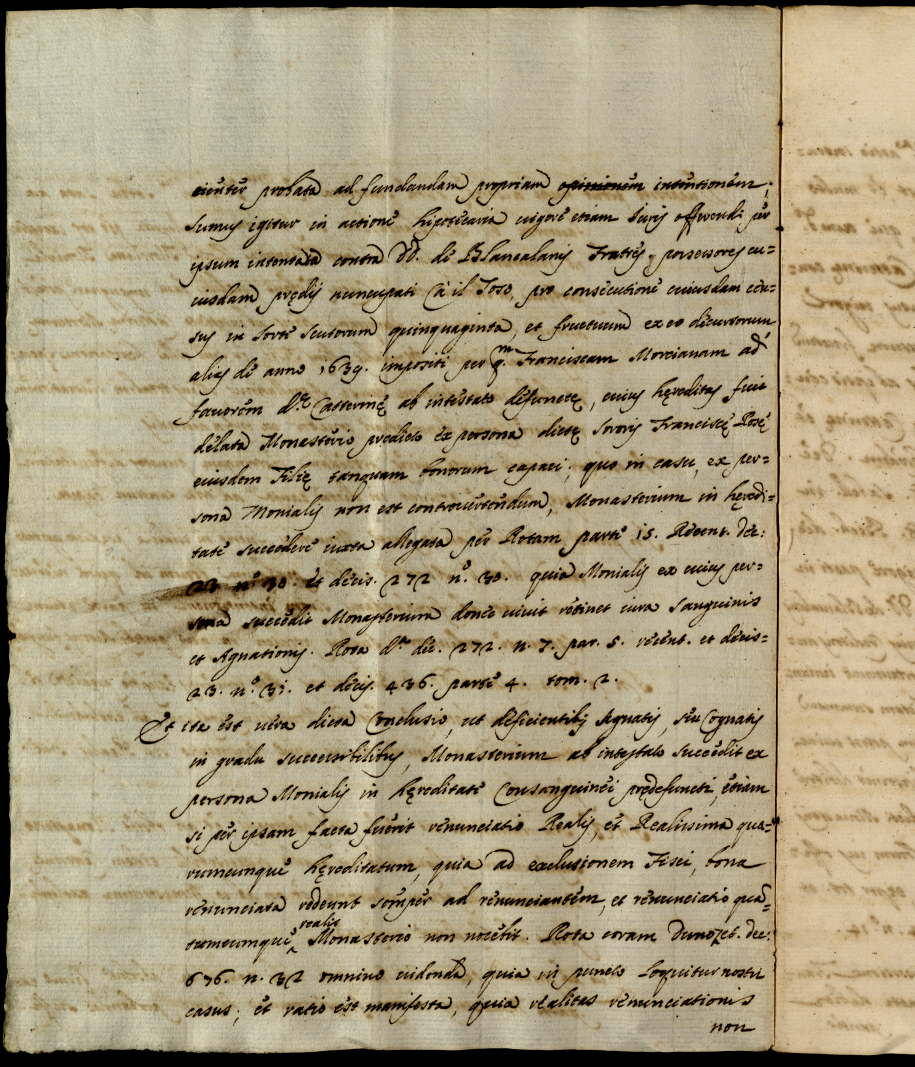 cienter probata ad fundandam propriam opinionem intentionem;
sumus igitur in actione hipotecaria vigore etiam Iuris offerendi per
ipsum intentata contra DD. de Blancalanis Fratres, possessores cu=
iusdam prędij nuncupati à il Toso, pro consecutione cuiusdam cen=
sus in sorte scutorum quinquaginta, et fructuum ex eo decursorum
alias de anno 1639. impositi per qm. Franciscam Morcianam ad
favorem d.tę Catterinę ab intestato defunctę, cuius hęreditas fuit
delata Monasterio predicto ex persona dictę Sororis Franciscę Rosę
eiusdem Filię tanquam bonorum capaci; quo in casu, ex per=
sona Monialis non est controvertendum, Monasterium in hęredi=
tate succedere iuxta allegata per Rotam parte 15. Recent. dec:
23 n.º 30. et decis. 272 n.º 30. quia Monialis ex cuius per=
sona succedit Monasterium donec vivit retinet iura sanguinis
et Agnationis. Rota d.ª dec. 272. n. 7. par. 5. recent. et decis=
23. n.º 31. et decis. 436. parte 4. tom. 2.
Et ita est vera dicta Conclusio, ut deficientibus Agnatis, seu Cognatis
in gradu successibilibus, Monasterium ab intestato succedit ex
persona Monialis in hęreditate Consanguinei prędefuncti, etiam
si per ipsam facta fuerit renunciatio Realis, et Realissima qua=
rumcunque hęreditatum, quia ad exclusionem Fisci, bona
renunciata redeunt semper ad renunciantem, et renunciatio quan=
tumcumque realis Monasterio non nocebit. Rota coram Dunozet. dec:
676. n. 32 omnino videnda, quia in puncto loquitur nostri
casus; et ratio est manifesta, quia realitas renunciationis
non